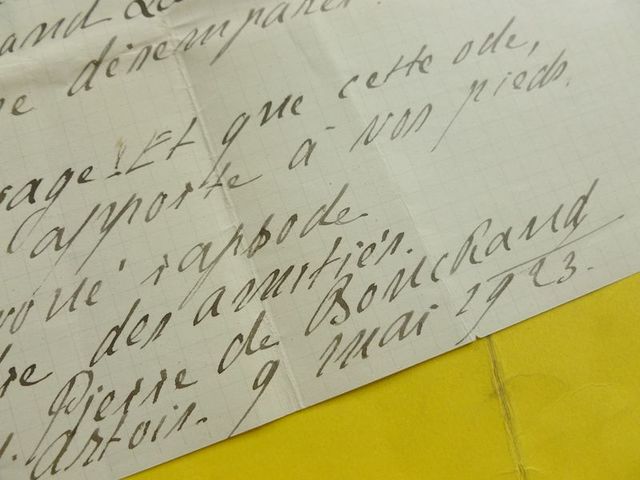 and
désemparer
rage! Et que cette ode,
l'apporte à vos pieds.
voué rapsode
des amitiés.
Pierre de Bouchaud
Artois. 9 mai 1923.